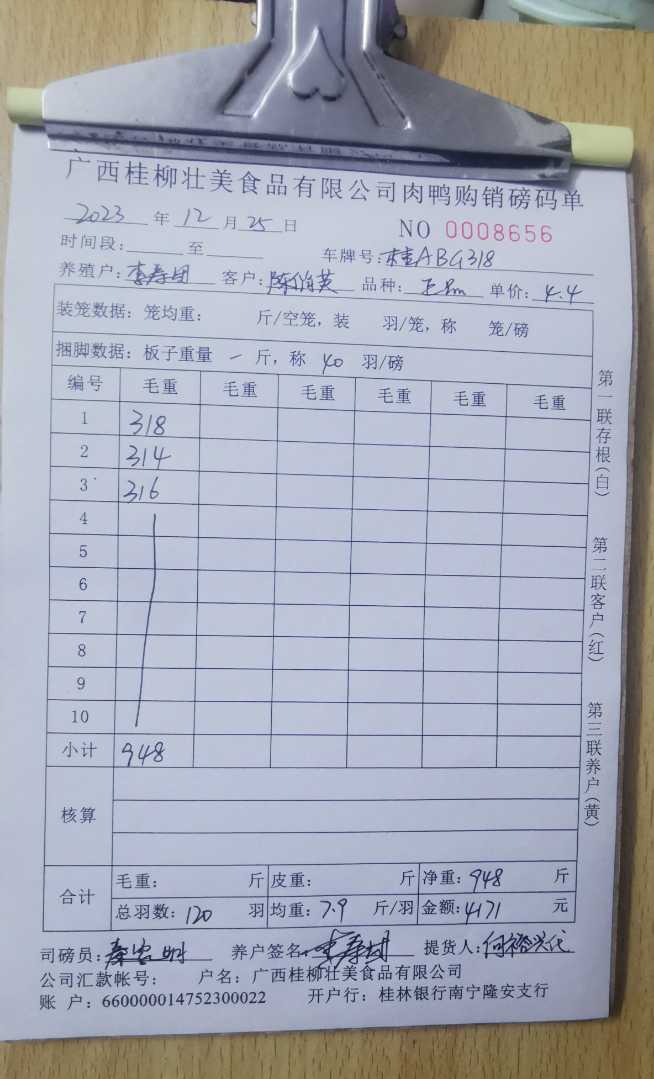 广西桂柳壮美食品有限公司肉鸭购销磅码单
2023 年 12 月 25 日 NO 0008656
时间段: 至 车牌号: 桂ABG318
养殖户: 李寿团 客户: 陈 英 品种: 单价: 4.4
装笼数据: 笼均重: 斤/空笼, 装 羽/笼, 称 笼/磅
捆脚数据: 板子重量 一 斤, 称 40 羽/磅
编号 毛重 毛重 毛重 毛重 毛重 毛重
1 318
2 314
3 316
4
5
6
7
8
9
10
小计 948
核算
合计
毛重: 斤 皮重: 斤 净重: 948 斤
总羽数: 120 羽 均重: 7.9 斤/羽 金额: 4171 元
司磅员: 养户签名: 李寿团 提货人: 何裕兴代
公司汇款帐号: 户名: 广西桂柳壮美食品有限公司
账 户: 660000014752300022 开户行: 桂林银行南宁隆安支行
第一联存根(白)
第二联客户(红)
第三联养户(黄)